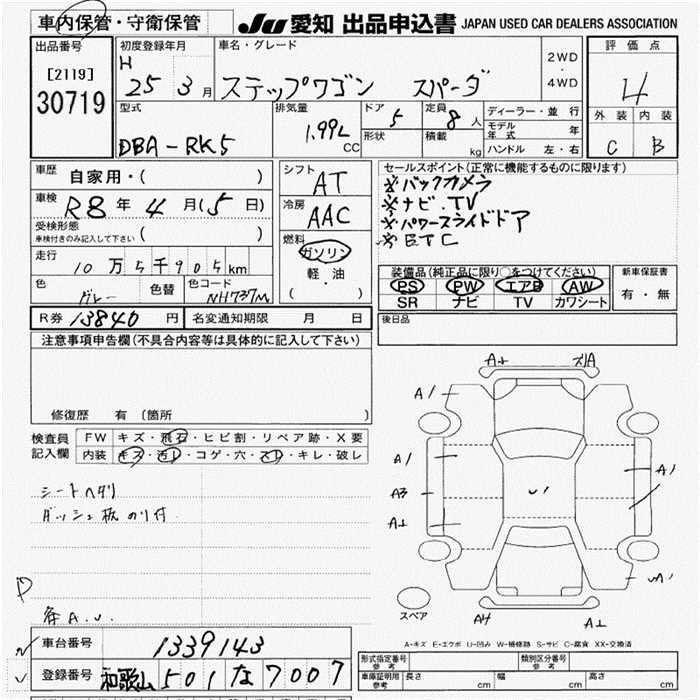 車内保管・守衛保管
JU 愛知 出品申込書 JAPAN USED CAR DEALERS ASSOCIATION
出品番号
[2119]
30719
初度登録年月
H 25 3月
車名・グレード
ステップワゴン スパーダ
2WD
・
4WD
評価点
4
外装 内装
C B
型式
DBA-RK5
排気量
1.99L
CC
ドア 5
形状
定員 8人
積載 kg
ディーラー・並行
モデル年式 年
ハンドル 左・右
車歴
自家用・( )
車検 R8年4月(5日)
受検形態
車検付きのみ記入して下さい ( )
走行
10万5千905km
色 グレー 色替 色コード NH737M
シフト
AT
冷房
AAC
燃料
ガソリン
軽・油
( ・ )
セールスポイント(正常に機能するものに限ります)
※バックカメラ
※ナビ.TV
※パワースライドドア
※ETC
装備品(純正品に限り○をつけてください)
PS PW エアB AW
SR ナビ TV カワシート
新車保証書
有・無
R券 13840円 名変通知期限 月 日
後日品
注意事項申告欄(不具合内容等は具体的に記入して下さい)
修復歴 有(箇所 )
検査員
記入欄
FW キズ・飛石・ヒビ割・リペア跡・X要
内装 キズ・汚レ・コゲ・穴・スレ・キレ・破レ
シートヘタリ
ダッシュ板のり付
各A.U.
A+ ズリA
A1
A1
A3
A1
A1
U1
U1
AH
A1
スペア
A-キズ E-エクボ U-凹み W-補修跡 S-サビ C-腐食 XX-交換済
車台番号 1339143
登録番号 和歌山 501 な 7007
形式指定番号
参考
類別区分番号
参考
車庫証明用
参考
長さ cm 幅 cm 高さ cm